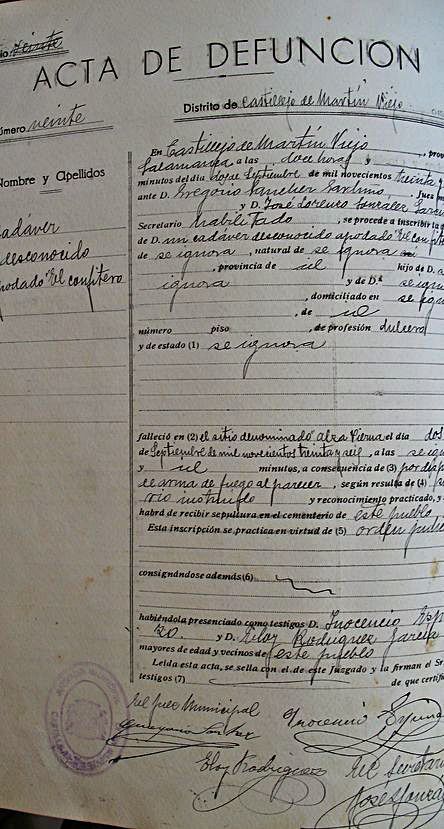 io veinte
ACTA DE DEFUNCIÓN
úmero veinte
Distrito de Castillejo de Martín Viejo
Nombre y Apellidos
cadáver
desconocido
apodado "El confitero
En Castillejo de Martín Viejo, prov
Salamanca a las doce horas y
minutos del día dos de Septiembre de mil novecientos treinta y
ante D. Gregorio Sanchez, Juez m
y D. José Lorenzo Gonzalez Garcia
Secretario habilitado, se procede a inscribir la d
de D. un cadáver desconocido apodado "El confit
de se ignora, natural de se ignora
, provincia de id hijo de D.
ignora y de D.ª se ign
, domiciliado en se igno
, de id
número piso, de profesión dulcero
y de estado (1) se ignora
falleció en (2) el sitio denominado el día dos
de Septiembre de mil novecientos treinta y seis, a las se ig
y id minutos, a consecuencia de (3) por disp
de arma de fuego al parecer, según resulta de (4)
rio instruido y reconocimiento practicado, y
habrá de recibir sepultura en el cementerio de este pueblo
Esta inscripción se practica en virtud de (5) orden judic
consignándose además (6)
habiéndola presenciado como testigos D. Inocencio Esp
y D. Eloy Rodriguez Garcia
mayores de edad y vecinos de este pueblo
Leída esta acta, se sella con el de este Juzgado y la firman el Sr
testigos (7) de que certif
El Juez Municipal
Inocencio
Eloy Rodriguez
El Secretari
José Gonza